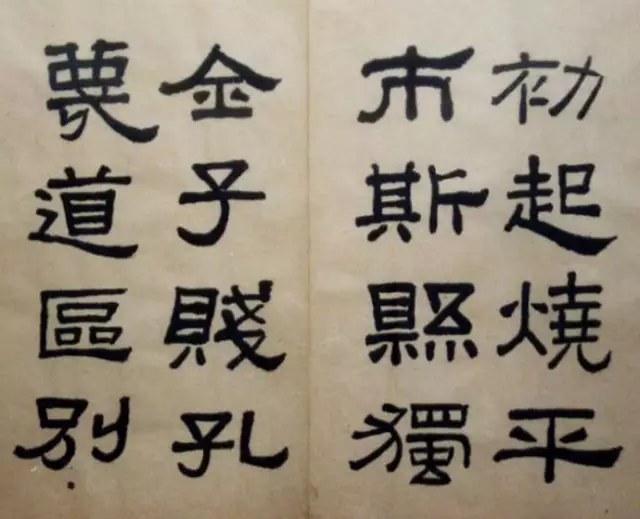 初起燒平
市斯縣獨
金子賤孔
蔑道區別